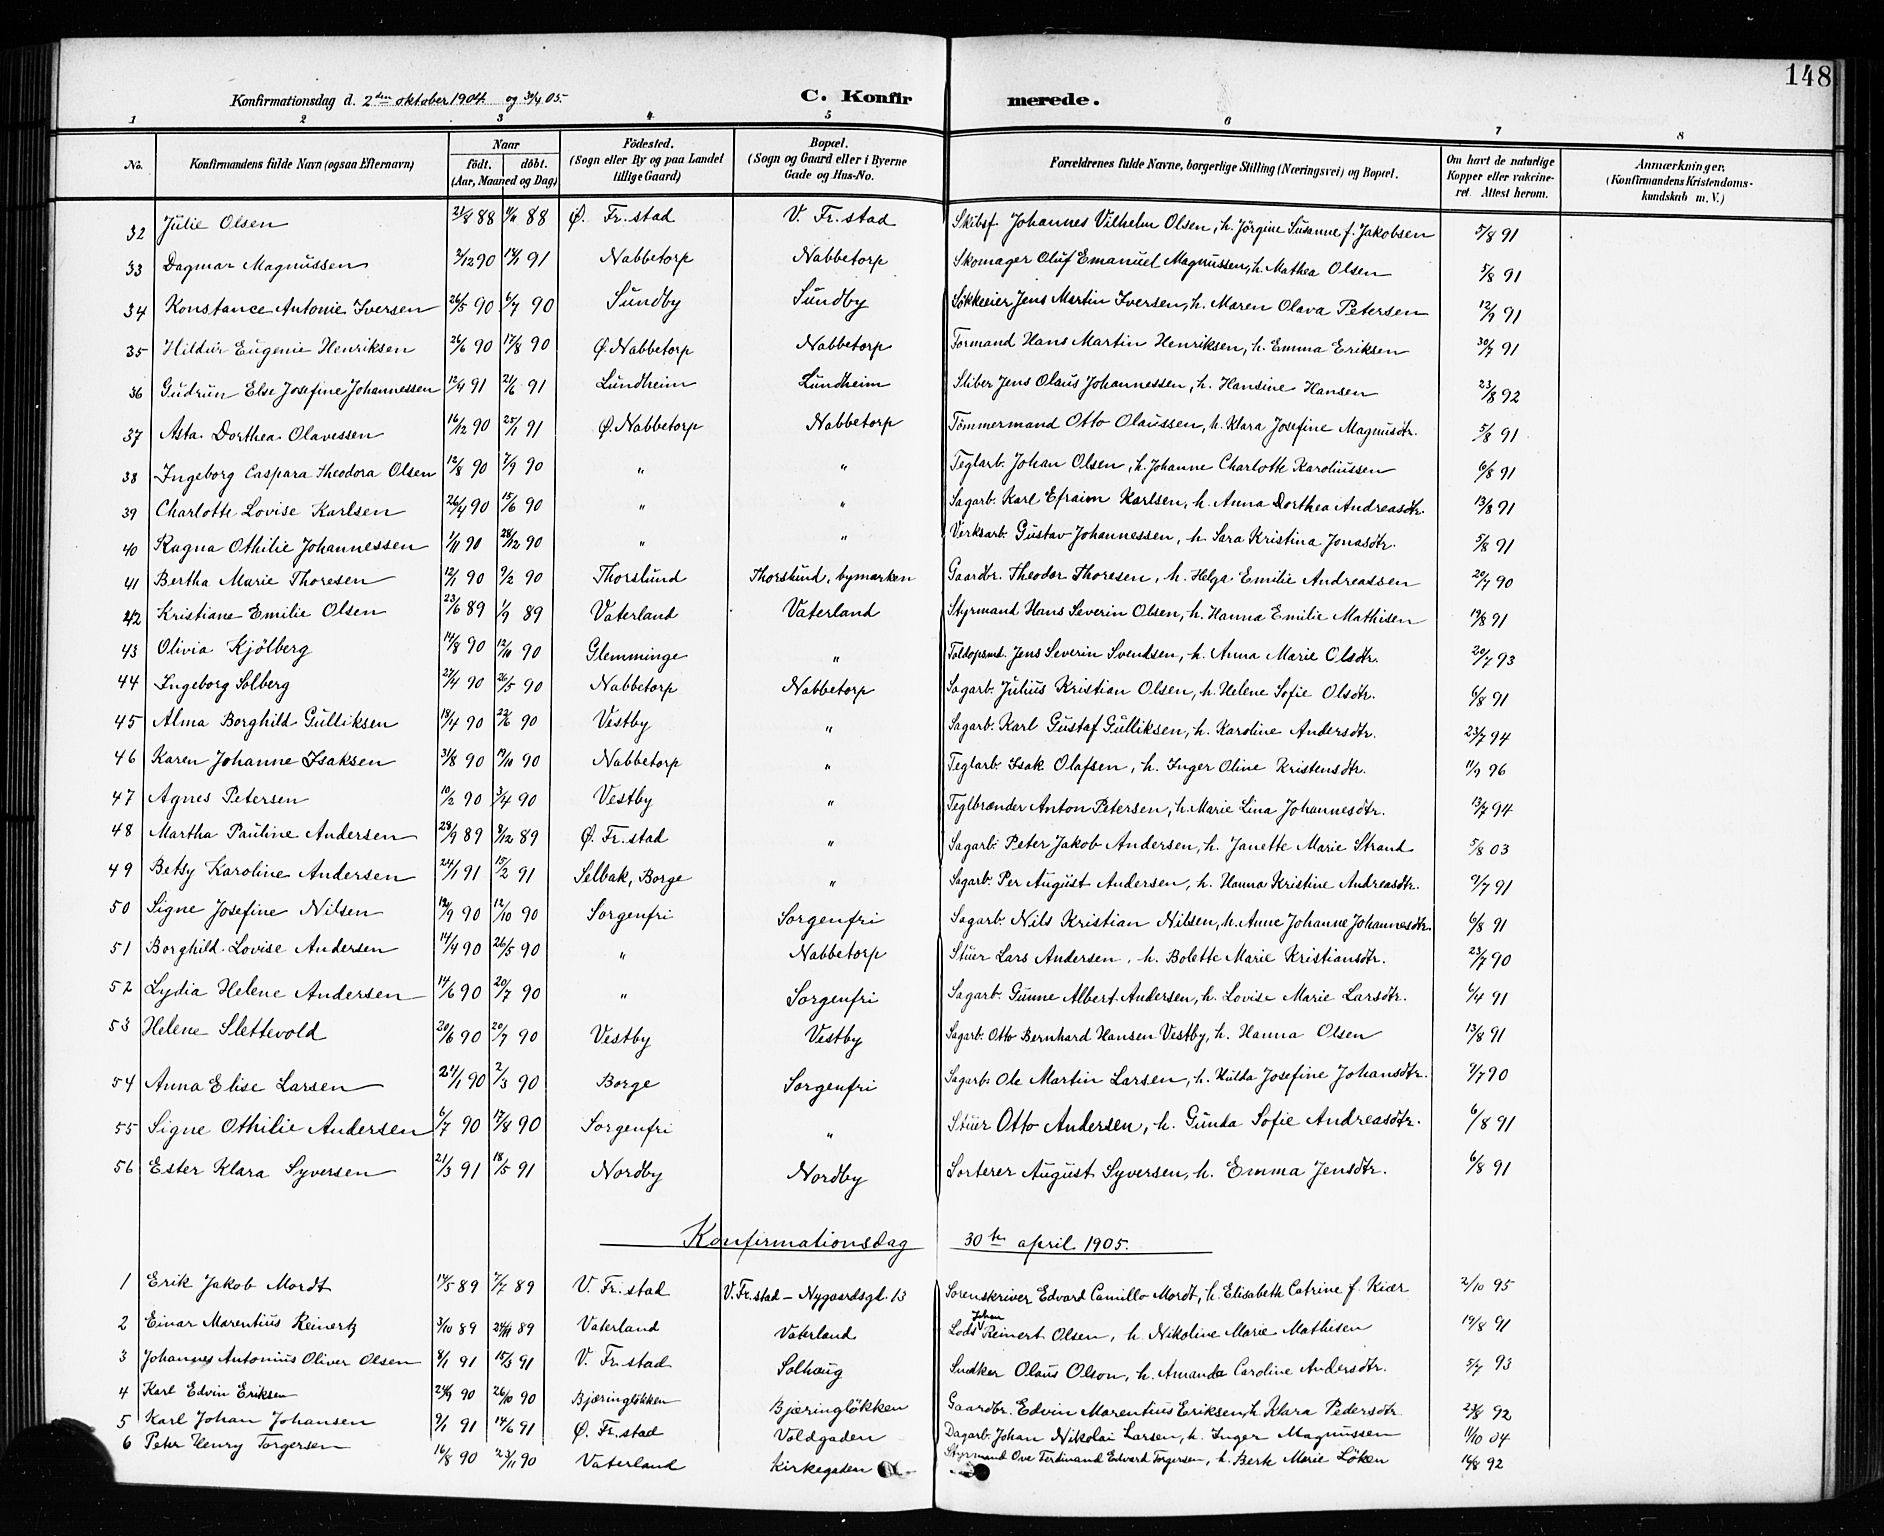 148
Konfirmationsdag d. 2den oktober 1904 og 30/4 05. C. Konfirmerede.
1 2 3 4 5 6 7 8
No. Konfirmandens fulde Navn (ogsaa Efternavn) Naar født. døbt. (Aar, Maaned og Dag) Födested. (Sogn eller By og paa Landet tillige Gaard) Bopæl. (Sogn og Gaard eller i Byerne Gade og Hus-No. Forældrenes fulde Navne, borgerlige Stilling (Næringsvei) og Bopæl. Om havt de naturlige Kopper eller vakcineret. Attest herom. Anmærkninger, (Konfirmandens Kristendomskundskab m. V.)
32 Julie Olsen 88 88 Ø. Fr.stad V. Fr.stad Skibsf. Johannes Vilhelm Olsen, h. Jörgine Susanne f. Jakobsen 5/8 91
33 Dagmar Magnussen 2/12 90 91 Nabbetorp Nabbetorp Skomager Oluf Emanuel Magnussen, h. Mathea Olsen 5/8 91
34 Konstance Antonie Iversen 26/5 90 6/7 90 Sundby Sundby Løkkeeier Jens Martin Iversen, h. Maren Olava Petersen 91
35 Hildur Eugenie Henriksen 26/6 90 17/8 90 Ø. Nabbetorp Nabbetorp Formand Hans Martin Henriksen, h. Emma Eriksen 30/7 91
36 Gudrun Else Josefine Johannessen 12/4 91 21/6 91 Lundheim Lundheim Sliber Jens Olaus Johannessen, h. Hansine Hansen 23/8 92
37 Asta Dorthea Olavessen 16/12 90 25/1 91 Ø. Nabbetorp Nabbetorp Tömmermand Otto Olaussen, h. Klara Josefine Magnusdtr. 5/8 91
38 Ingeborg Caspara Theodora Olsen 12/8 90 7/9 90 " " Teglarb. Johan Olsen, h. Johanne Charlotte Karoliussen 6/8 91
39 Charlotte Lovise Karlsen 26/4 90 15/6 90 " " Sagarb. Karl Efraim Karlsen, h. Anna Dorthea Andreasdtr. 13/8 91
40 Ragna Othilie Johannessen 1/11 90 28/12 90 " " Verksarb. Gustav Johannessen, h. Sara Kristina Jonasdtr. 5/8 91
41 Bertha Marie Thoresen 12/1 90 9/2 90 Thorslund Thorslund, bymarken Gaardbr. Theodor Thoresen, h. Helga Emilie Andreassen 20/7 90
42 Kristiane Emilie Olsen 23/6 89 1/9 89 Vaterland Vaterland Styrmand Hans Severin Olsen, h. Hanna Emilie Mathisen 19/8 91
43 Olivia Kjölberg 14/8 90 12/10 90 Glemminge " Toldopsmd. Jens Severin Svendsen, h. Anna Marie Olsdtr. 20/7 93
44 Ingeborg Solberg 27/4 90 26/5 90 Nabbetorp Nabbetorp Sagarb. Julius Kristian Olsen, h. Helene Sofie Olsdtr. 6/8 91
45 Alma Borghild Gulliksen 18/4 90 22/6 90 Vestby " Sagarb. Karl Gustaf Gulliksen, h. Karoline Andersdtr. 23/7 94
46 Karen Johanne Isaksen 31/8 90 19/10 90 Nabbetorp " Teglarb. Isak Olafsen, h. Inger Oline Kristensdtr. 96
47 Agnes Petersen 10/2 90 3/4 90 Vestby " Teglbrænder Anton Petersen, h. Marie Lina Johannesdtr. 13/7 94
48 Martha Pauline Andersen 28/9 89 8/12 89 Ø. Fr.stad " Sagarb. Peter Jakob Andersen, h. Janette Marie Strand 5/8 03
49 Betsy Karoline Andersen 24/1 91 15/2 91 Selbak, Borge " Sagarb. Per August Andersen, h. Hanna Kristine Andreasdtr. 9/7 91
50 Signe Josefine Nilsen 12/9 90 12/10 90 Sorgenfri Sorgenfri Sagarb. Nils Kristian Nilsen, h. Anne Johanne Johannesdtr. 6/8 91
51 Borghild Lovise Andersen 14/4 90 26/5 90 " Nabbetorp Stuer Lars Andersen, h. Bolette Marie Kristiansdtr. 23/7 90
52 Lydia Helene Andersen 14/6 90 20/7 90 " Sorgenfri Sagarb. Gunne Albert Andersen, h. Lovise Marie Larsdtr. 6/4 91
53 Helene Slettevold 20/6 90 20/7 90 Vestby Vestby Sagarb. Otto Bernhard Hansen Vestby, h. Hanna Olsen 13/8 91
54 Anna Elise Larsen 24/1 90 2/3 90 Borge Sorgenfri Sagarb. Ole Martin Larsen, h. Hulda Josefine Johansdtr. 9/7 90
55 Signe Othilie Andersen 6/7 90 17/8 90 Sorgenfri " Stuer Otto Andersen, h. Gunda Sofie Andreasdtr. 6/8 91
56 Ester Klara Syversen 21/3 91 18/5 91 Nordby Nordby Sorterer August Syversen, h. Emma Jensdtr. 6/8 91
Konfirmationsdag 30te april 1905.
1 Erik Jakob Mordt 14/5 89 7/7 89 V. Fr.stad V. Fr.stad – Nygaardsgt. 13 Sorenskriver Edvard Camillo Mordt, h. Elisabeth Catrine f. Kiær 2/10 95
2 Einar Marentius Reinertz 3/10 89 24/11 89 Vaterland Vaterland Lods Johan Reinert Olsen, h. Nikoline Marie Mathisen 19/8 91
3 Johannes Antonius Oliver Olsen 8/1 91 15/3 91 V. Fr.stad Solhaug Snedker Olaus Olson, h. Amanda Caroline Andersdtr. 5/7 93
4 Karl Edvin Eriksen 90 26/10 90 Bjæringlökken Bjæringlökken Gaardbr. Edvin Marentius Eriksen, h. Klara Pedersdtr. 92
5 Karl Johan Johansen 9/1 91 14/6 91 Ø. Fr.stad Voldgaden Dagarb. Johan Nikolai Larsen, h. Inger Magnussen 11/10 04
6 Peter Henry Torgersen 16/8 90 23/11 90 Vaterland Kirkegaden Styrmand Ove Ferdinand Edvard Torgersen, h. Berte Marie Löken 16/8 92